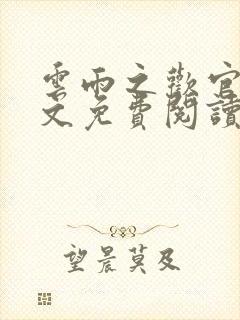 雲雨之歡官
文免費閱讀
望晨莫及